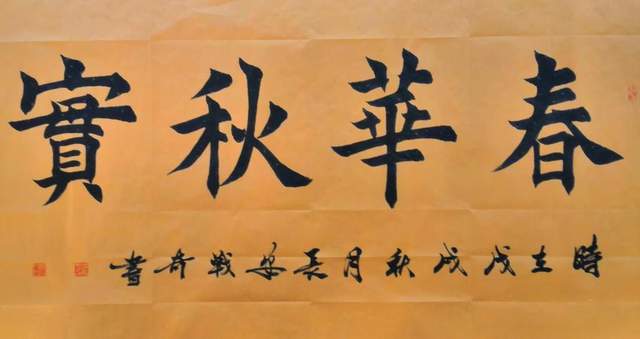 春華秋實
時在戊戌秋月長安戰奇書